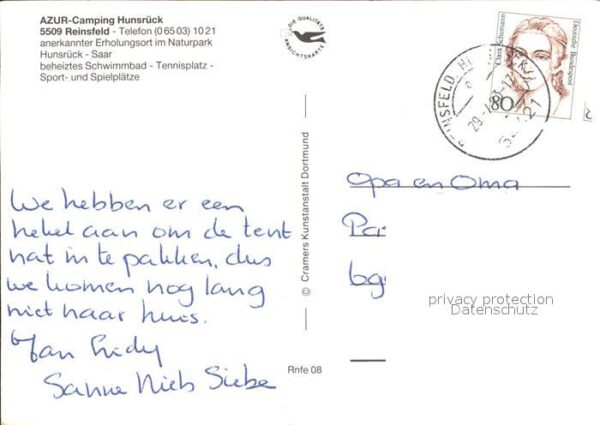 AZUR-Camping Hunsrück
5509 Reinsfeld - Telefon (0 65 03) 10 21
anerkannter Erholungsort im Naturpark
Hunsrück - Saar
beheiztes Schwimmbad - Tennisplatz -
Sport- und Spielplätze
DIE QUALITÄTS
ANSICHTSKARTE
Clara Schumann
Deutsche Bundespost
80
© Cramers Kunstanstalt Dortmund
We hebben er een
hekel aan om de tent
nat in te pakken, dus
we komen nog lang
niet naar huis.
Jan
Sanne Niels Siebe
Opa en Oma
Pa
privacy protection
Datenschutz
Rnfe 08